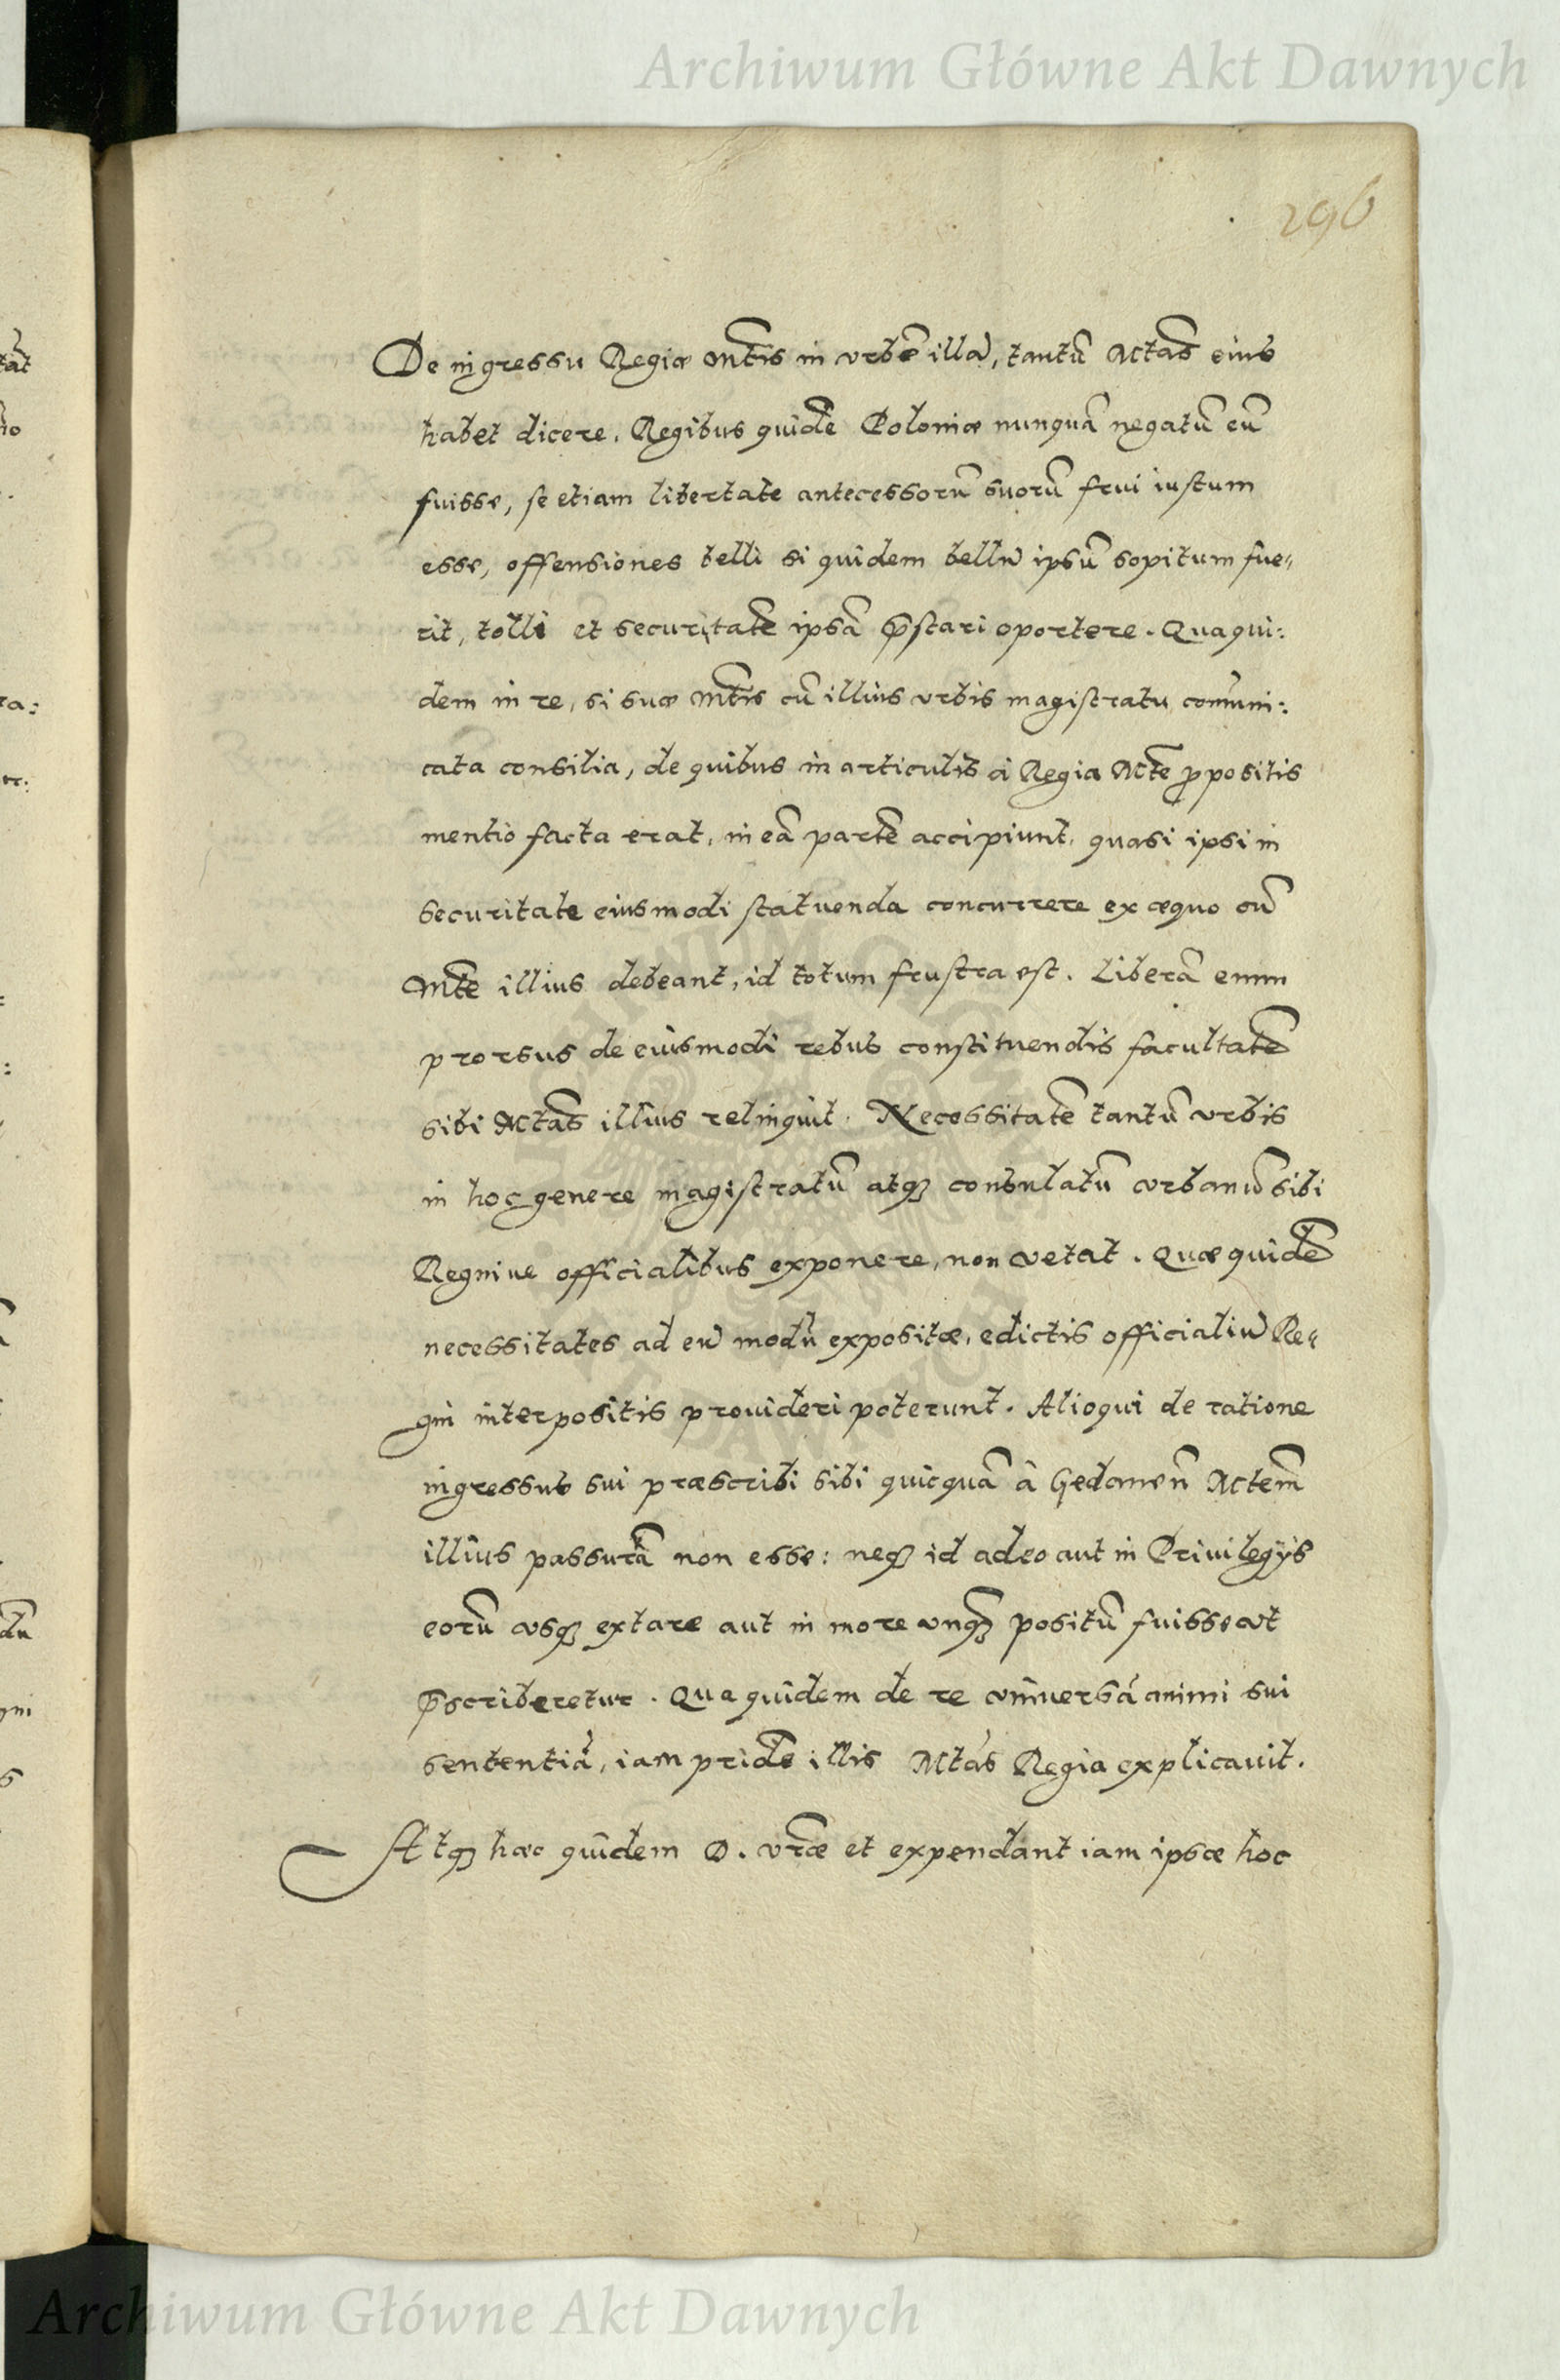 Archiwum Główne Akt Dawnych
296
De ingressu Regiæ Mt̃is in vrbẽ illã, tantũ Mtãs eius
habet dicere. Regibus quidẽ Poloniæ nunquã negatũ eũ
fuisse, se etiam libertate antecessorũ suorũ frui iustum
esse, offensiones belli si quidem bellũ ipsũ sopitum fue„
rit, tolli et securitatẽ ipsã p̃stari oportere. Qua qui:
dem in re, si suæ Mt̃is cũ illius vrbis magistratu com̃uni:
cata consilia, de quibus in articulis à Regia Mt̃e ꝓpositis
mentio facta erat, in eã partẽ accipiunt, quasi ipsi in
securitate eiusmodi statuenda concurrere ex æquo cũ
Mt̃e illius debeant, id totum frustra est. Liberã enim
prorsus de eiusmodi rebus constituendis facultatẽ
sibi Mtãs illius relinquit. Necessitatẽ tantũ vrbis
in hoc genere magistratũ atqꝫ consulatũ vrbanũ sibi
Regniue officialibus exponere, non vetat. Quæ quidẽ
necessitates ad eũ modũ expositæ, edictis officialiũ Re„
gni interpositis prouideri poterunt. Alioqui de ratione
ingressus sui præscribi sibi quicquã à Gedaneñ Mtem̃
illius passurã non esse: neqꝫ id adeo aut in Priuilegijs
eorũ vsqꝫ extare aut in more vnqꝫ positũ fuisse vt
p̃scriberetur. Qua quidem de re vniuersã animi sui
sententiã, iam pridẽ illis Mtãs Regia explicauit.
Atqꝫ hæc quidem D. vr̃æ et expendant iam ipsæ hoc
Archiwum Główne Akt Dawnych